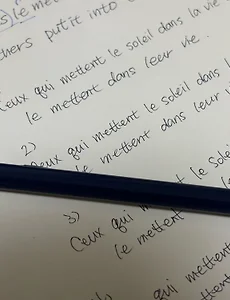 s) le me
thers put it into
Ceux qui mettent le soleil dans la vie
le mettent dans leur vie.
2)
Ceux qui mettent le soleil dans l
le mettent dans leur
3)
Ceux qui mettent le Sole
le mettent
qui mettent